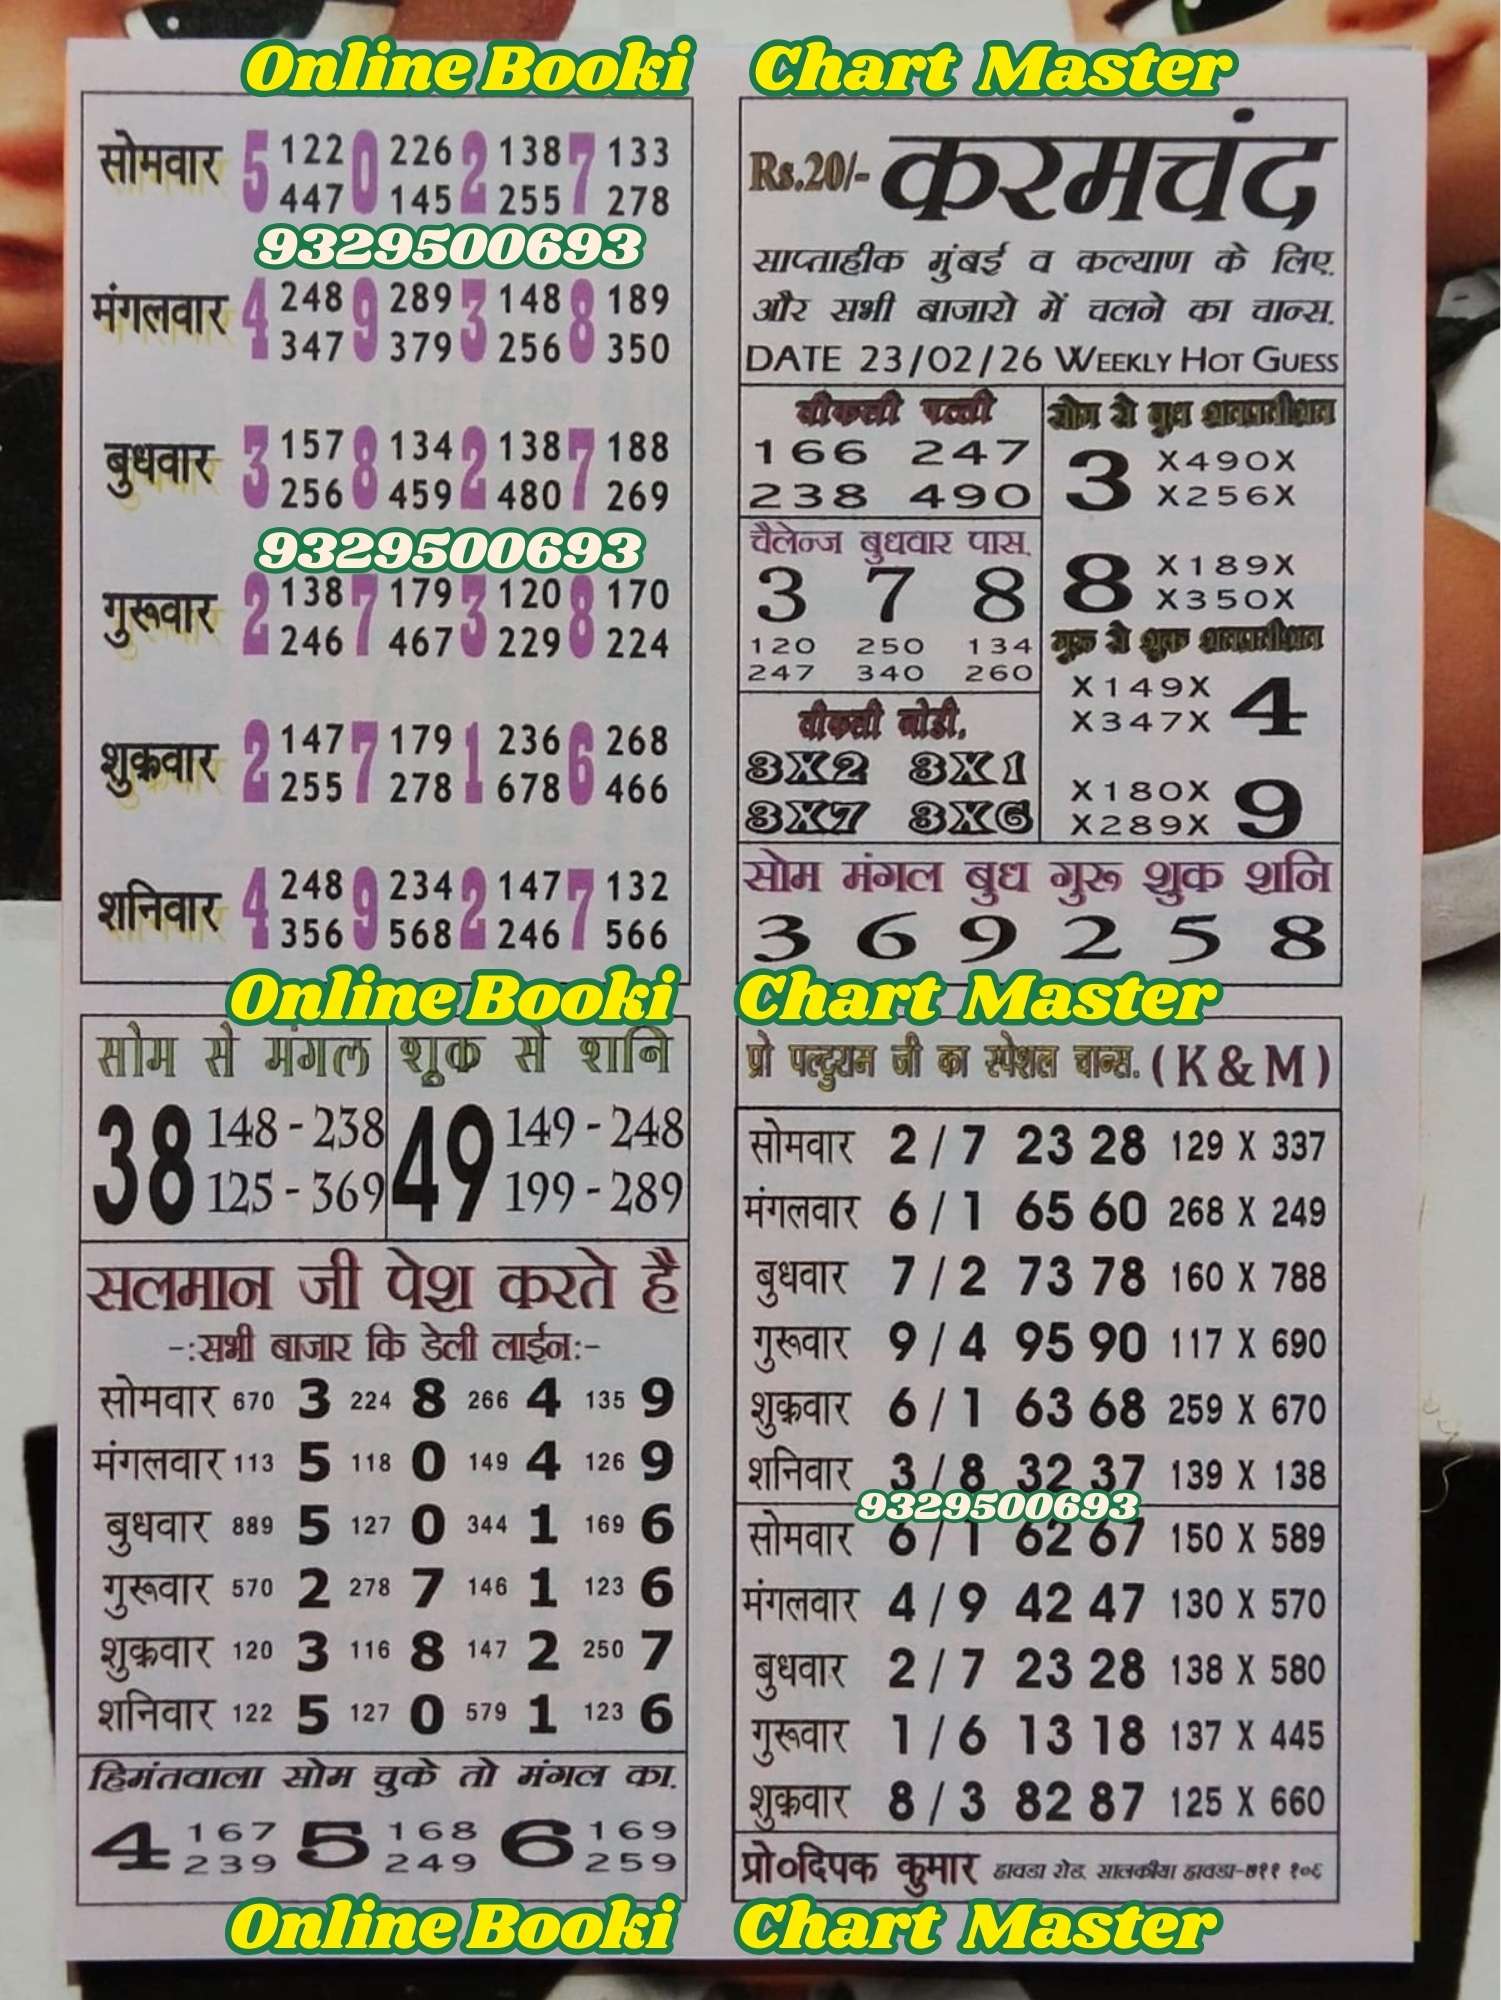 Online Booki Chart Master
सोमवार 5 122 0 226 2 138 7 133
447 145 255 278
9329500693
मंगलवार 4 248 9 289 3 148 8 189
347 379 256 350
बुधवार 3 157 8 134 2 138 7 188
256 459 480 269
9329500693
गुरूवार 2 138 7 179 3 120 8 170
246 467 229 224
शुक्रवार 2 147 7 179 1 236 6 268
255 278 678 466
शनिवार 4 248 9 234 2 147 7 132
356 568 246 566
Rs.20/- करमचंद
साप्ताहीक मुंबई व कल्याण के लिए.
और सभी बाजारो में चलने का चान्स.
DATE 23/02/26 WEEKLY HOT GUESS
वीकली पत्ती
166 247
238 490
चैलेन्ज बुधवार पास.
3 7 8
120 250 134
247 340 260
वीकली जोडी.
3X2 3X1
3X7 3X6
सोम से बुध शतप्रतीशत
3 X490X
X256X
8 X189X
X350X
गुरू से शुक्र शतप्रतीशत
X149X 4
X347X
X180X 9
X289X
सोम मंगल बुध गुरू शुक्र शनि
3 6 9 2 5 8
Online Booki Chart Master
सोम से मंगल
38 148 - 238
125 - 369
शूक्र से शनि
49 149 - 248
199 - 289
सलमान जी पेश करते है
-:सभी बाजार कि डेली लाईन:-
सोमवार 670 3 224 8 266 4 135 9
मंगलवार 113 5 118 0 149 4 126 9
बुधवार 889 5 127 0 344 1 169 6
गुरूवार 570 2 278 7 146 1 123 6
शुक्रवार 120 3 116 8 147 2 250 7
शनिवार 122 5 127 0 579 1 123 6
हिमंतवाला सोम चुके तो मंगल का.
4 167 5 168 6 169
239 249 259
प्रो पल्टुराम जी का स्पेशल चान्स. (K & M)
सोमवार 2 / 7 23 28 129 X 337
मंगलवार 6 / 1 65 60 268 X 249
बुधवार 7 / 2 73 78 160 X 788
गुरूवार 9 / 4 95 90 117 X 690
शुक्रवार 6 / 1 63 68 259 X 670
शनिवार 3 / 8 32 37 139 X 138
9329500693
सोमवार 6 / 1 62 67 150 X 589
मंगलवार 4 / 9 42 47 130 X 570
बुधवार 2 / 7 23 28 138 X 580
गुरूवार 1 / 6 13 18 137 X 445
शुक्रवार 8 / 3 82 87 125 X 660
प्रो०दिपक कुमार हावडा रोड, सालकीया हावडा-७११ १०६
Online Booki Chart Master